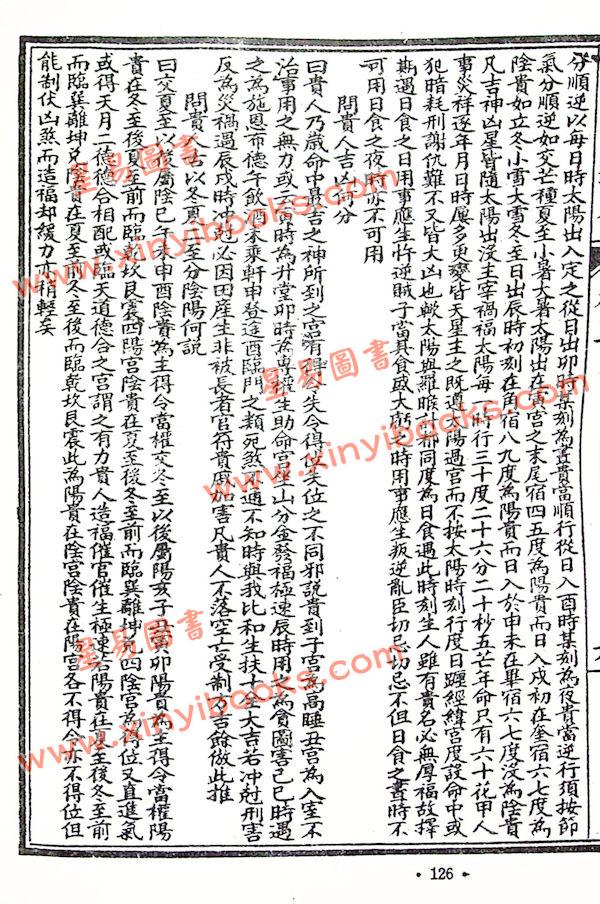 分順逆以每日時太陽出入定之從日出卯時某刻為晝貴當順行從日入酉時某刻為夜貴當逆行須按節
氣分順逆如交芒種夏至小暑大暑太陽出在寅宮之末尾宿四五度為陽貴而日入戌初在奎宿六七度為
陰貴如立冬小雪大雪冬至日出辰時初刻在角宿八九度為陽貴而日入於申末在畢宿六七度沒為陰貴
凡吉神凶星皆隨太陽出沒主宰禍福太陽每一時行三十度二十六分二十秒五芒年命只有六十花甲人
事災祥逐年月日時屢多更變皆天星主之既遵太陽過宮而不按太陽時刻行度日躔經緯宮度設命中或
犯暗耗刑謝仇難不又皆大凶也歟太陽與羅睺計都同度為日食遇此時刻生人雖有貴名必無厚福故擇
期遇日食之日用事應生忤逆賊子當其食盛大虧之時用事應生叛逆亂臣切忌切忌不但日食之晝時不
可用日食之夜時亦不可用
問貴人吉凶何分
曰貴人乃歲命中最吉之神所到之宮有得令失令得位失位之不同邪說貴到子宮為高睡丑宮為入室不
治事用之無力或云寅時為升堂卯時為專權生助命宮坐山分金發福極速辰時用之為貪圖害己巳時遇
之為施恩布德午飲酒未乘軒申登途酉臨門之類宛然可通不知時與我比和生扶十全大吉若冲尅刑害
反為災禍遇辰戌時冲尅必因田產生非被長者官符貴因加害凡貴人不落空亡受制方吉餘倣此推
問貴人古以冬夏二至分陰陽何說
曰交夏至以後屬陰巳午未申酉陰貴為主得令當權交冬至以後屬陽亥子丑寅卯陽貴為主得令當權陽
貴在冬至後夏至前而臨乾坎艮震四陽宮陰貴在夏至後冬至前而臨巽離坤兌四陰宮為得位又直進氣
或得天月二德德合相配或臨天道德合之宮謂之有力貴人造福催官催生極速若陽貴在夏至後冬至前
而臨巽離坤兌陰貴在夏至前冬至後而臨乾坎艮震此為陽貴在陰宮陰貴在陽宮各不得令亦不得位但
能制伏凶煞而造福却緩力亦稍輕矣
· 126 ·
星易圖書
www.xinyibooks.com
星易圖書
www.xinyibooks.com
星易圖書
www.xinyibooks.com